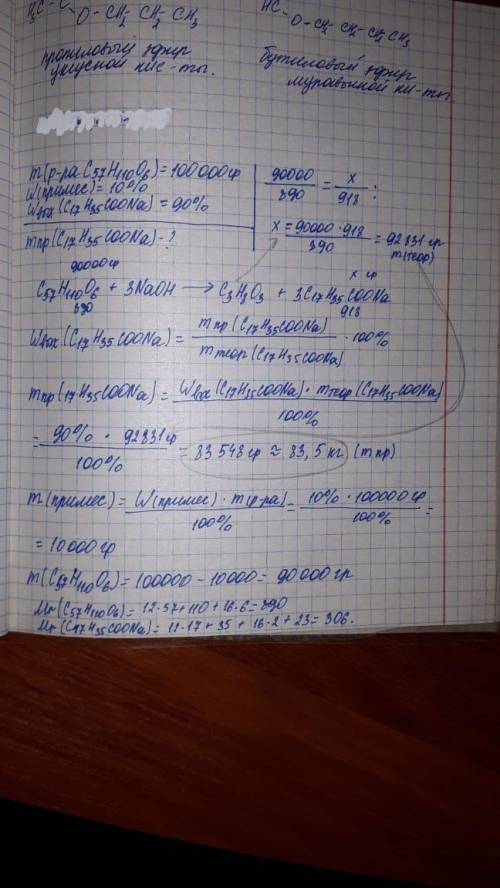 H₃C-C O-CH₂-CH₂-CH₃
HC- O-CH₂-CH₂-CH₂CH₃
пропиловый эфир
уксусной кис-ты.
бутиловый эфир
муравьиной ки-ты
m(р-ра C₅₇H₁₁₀O₆) = 100000гр
W(примес) = 10%
Wвых(C₁₇H₃₅COONa) = 90%
mпр(C₁₇H₃₅COONa) - ?
90000/890 = x/918 ;
x = 90000 · 918/890 = 92831 гр
m(теор)
90000гр
x гр
C₅₇H₁₁₀O₆ + 3NaOH → C₃H₈O₃ + 3C₁₇H₃₅COONa
890
918
Wвых(C₁₇H₃₅COONa) = mпр(C₁₇H₃₅COONa)/mтеор(C₁₇H₃₅COONa) · 100%
mпр(17H₃₅COONa) = Wвых(C₁₇H₃₅COONa) · mтеор(C₁₇H₃₅COONa)/100%
= 90% · 92831гр/100% = 83548гр ≈ 83,5 кг. (mпр)
m(примес) = W(примес) · m(р-ра)/100% = 10% · 100000гр/100% =
= 10000гр
m(C₅₇H₁₁₀O₆) = 100000 - 10000 = 90000гр
Mr(C₅₇H₁₁₀O₆) = 12·57+110+16·6 = 890
Mr(C₁₇H₃₅COONa) = 12·17+35+16·2+23 = 306.